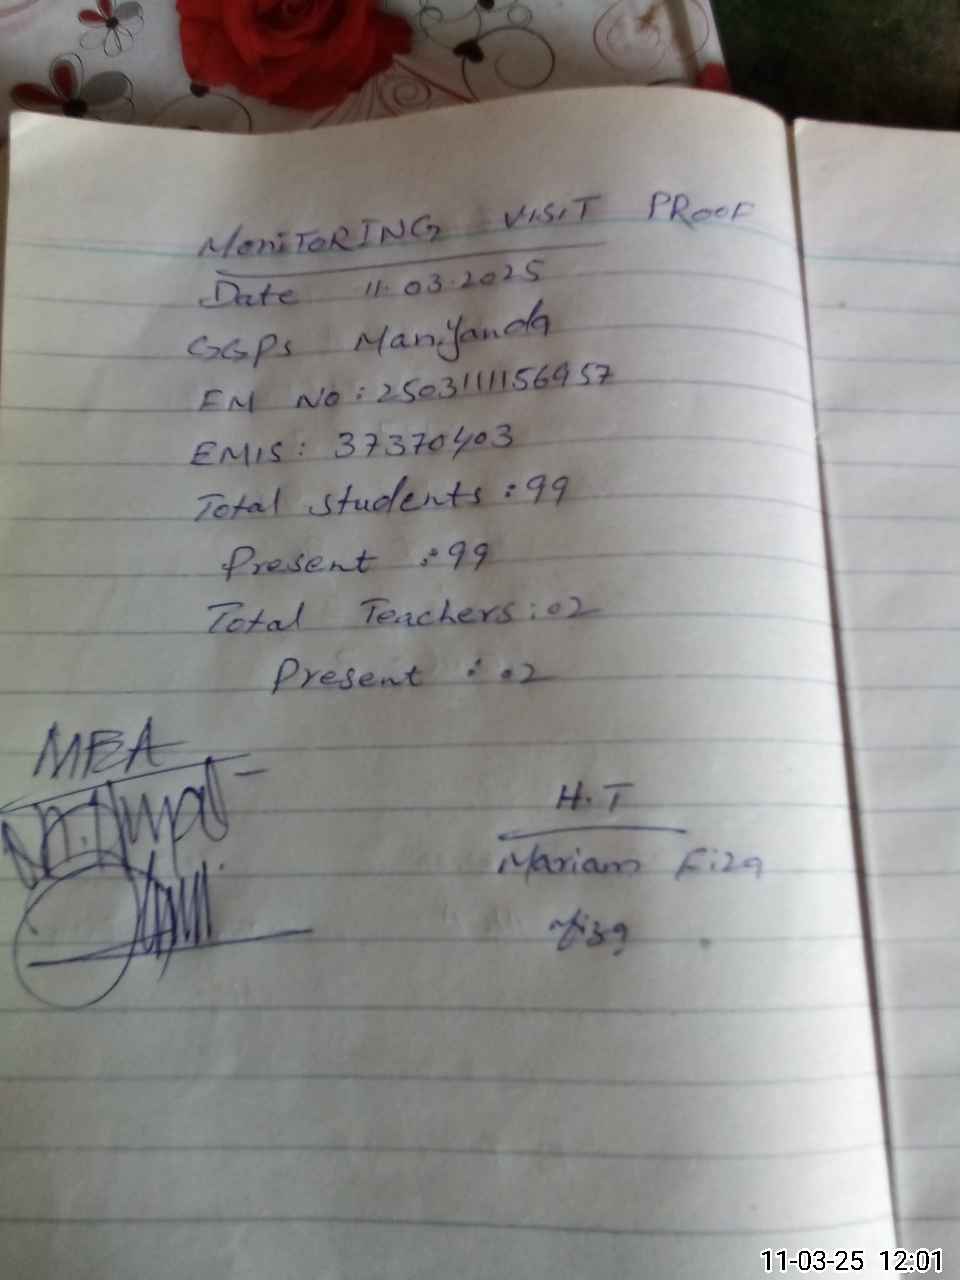 MoniToRING VISIT PRooF
Date 11.03.2025
GGPs Maniyanda
EM No: 2503111156957
EMIS: 37370403
Total students: 99
Present : 99
Total Teachers: 02
Present : 02
MEA
H.T
Mariam Fiza
Fiza
11-03-25 12:01